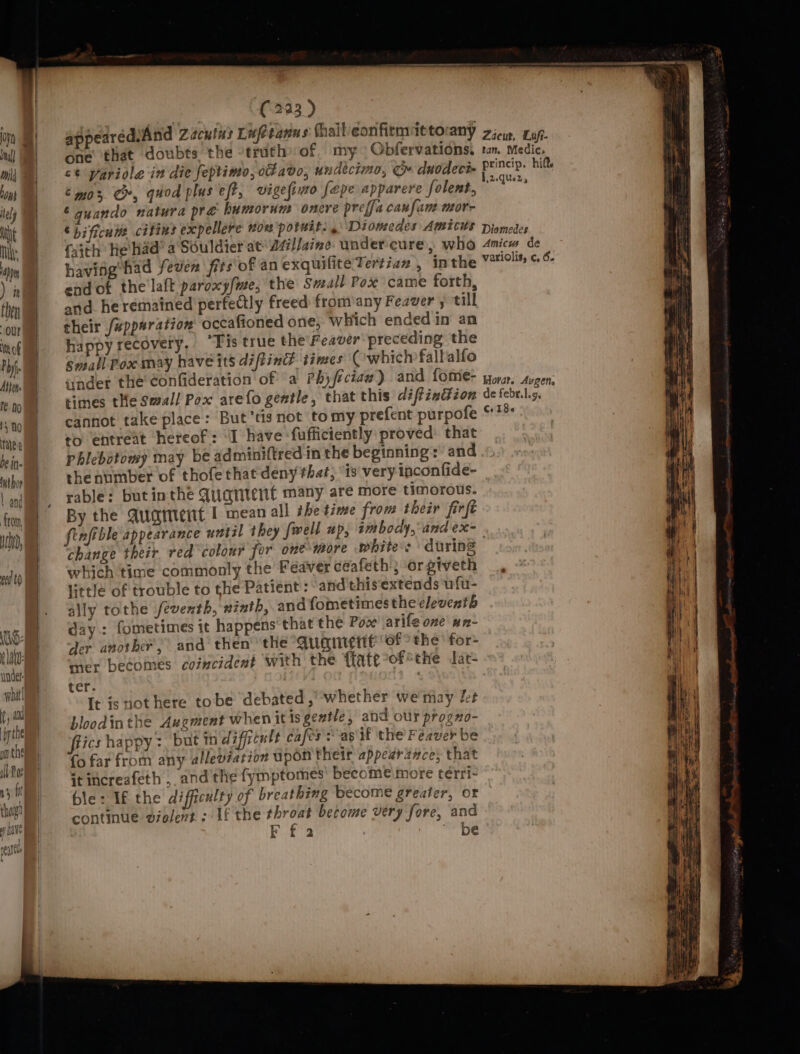 (223)
appeared. And Zacutus Lusitanus shall confirm it to any
one that doubts the truth of my Observations.
Zacut. Lusi-
tan. Medic.
princip. hist.
l.2.ques,
“ Variolæ in die septimo, octavo, undecimo, & duodeci-
“ mo, &, quod plus est, vigesimo sæpe apparere solent,
“ quando natura præ humorum onere pressa causam mor-
“ bificum citius expellere non potuit. Diomedes Amicus
saith he had a Souldier at Millaine under cure, who
having had seven fits of an exquisite Tertian, in the
Diomedes
Amicus de
variolis, c. 6.
end of the last paroxysme, the Small Pox came forth,
and he remained perfectly freed from any Feaver, till
their suppuration occasioned one, which ended in an
happy recovery. 'Tis true the Feaver preceding the
Small Pox may have its distinct times (which fall also
under the consideration of a Physician) and some-
times the Small Pox are so gentle, that this distinction
cannot take place: But 'tis not to my present purpose
Horat. Augen.
de febr. l.9.
c. 18.
to entreat hereof: I have sufficiently proved that
Phlebotomy may be administred in the beginning: and
the number of those that deny that, is very inconside-
rable: but in the Augment many are more timorous.
By the Augment I mean all the time from their first
sensible appearance until they swell up, imbody, and ex-
change their red colour for one more white: during
which time commonly the Feaver ceaseth, or giveth
little of trouble to the Patient: and this extends usu-
ally to the seventh, ninth, and sometimes the eleventh
day: sometimes it happens that the Pox arise one un-
der another, and then the Augment of the for-
mer becomes coincident with the state of the lat-
ter.
It is not here to be debated, whether we may let
blood in the Augment when it is gentle, and our progno-
stics happy: but in difficult cases: as if the Feaver be
so far from any alleviation upon their appearance, that
it increaseth, and the symptomes become more terri-
ble: If the difficulty of breathing become greater, or
continue violent: If the throat become very sore, and
F f 2
be